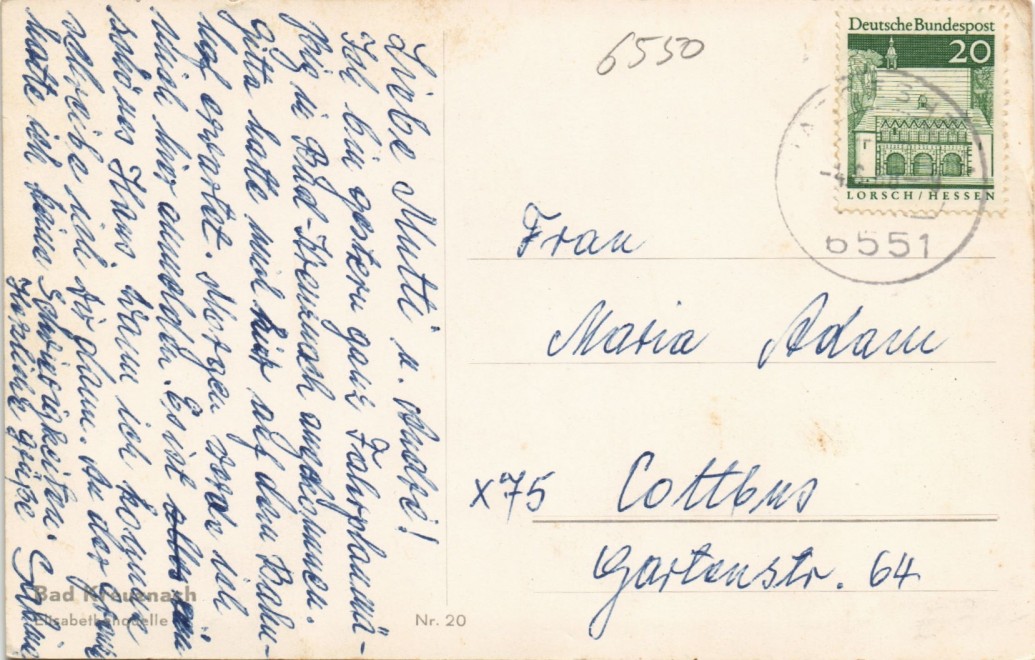 Liebe Mutti u. André!
Ich bin gestern ganz Fahrplanmä-
ßig in Bad-Kreuznach angekommen.
Gitta hatte mich hier auf dem Bahn-
hof erwartet. Morgen werde ich
mich hier anmelden. Es ist ein
schönes Haus. Wann ich komme
schreibe ich dir genau. An der Grenze
hatte ich keine Schwierigkeiten.
Herzliche Grüße
Bad Kreuznach
Elisabethenquelle
Nr. 20
6550
Deutsche Bundespost
20
LORSCH / HESSEN
6551
Frau
Maria Adam
X75 Cottbus
Gartenstr. 64